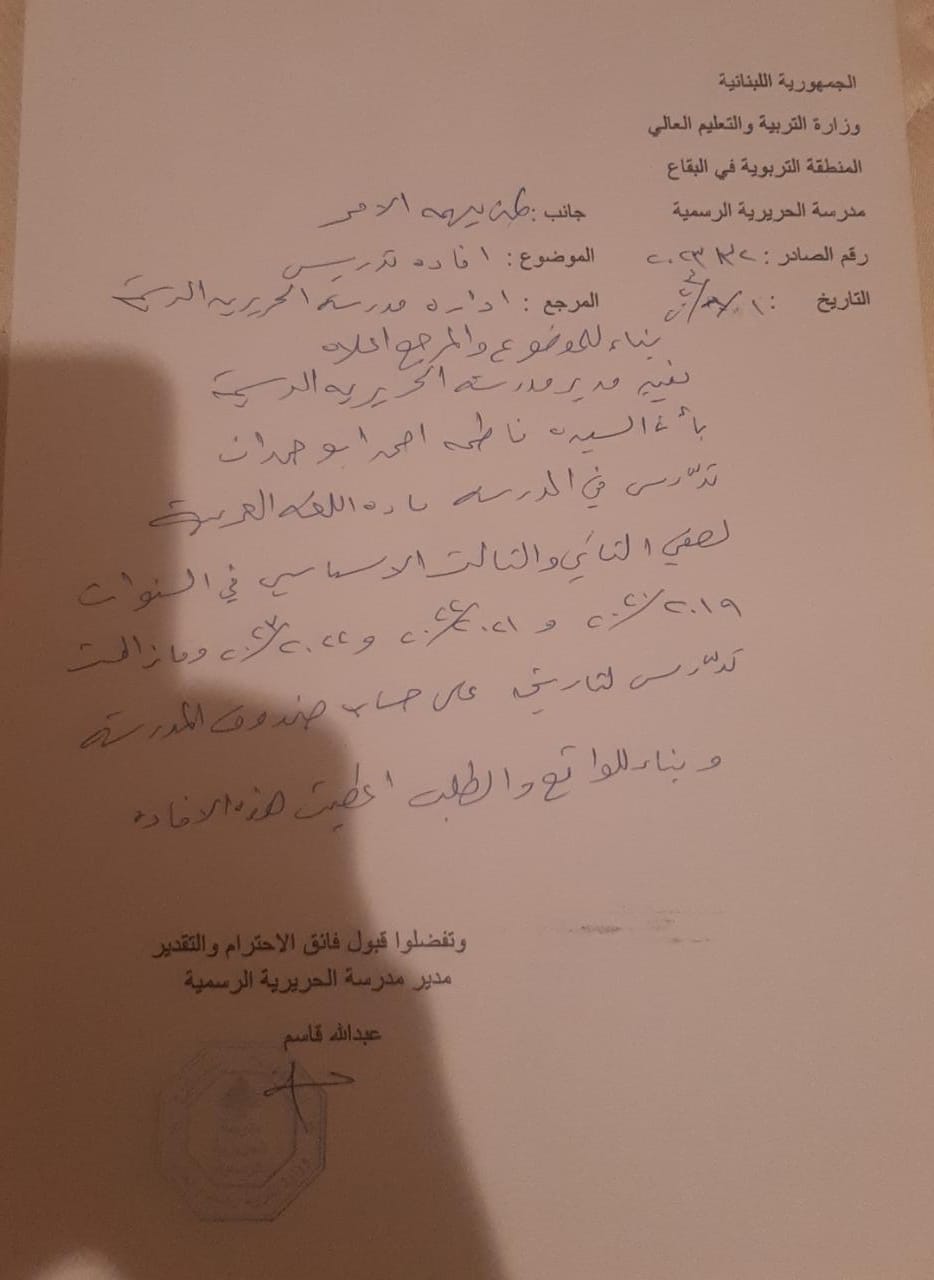 الجمهورية اللبنانية
وزارة التربية والتعليم العالي
المنطقة التربوية في البقاع
مدرسة الحريرية الرسمية
جانب : من يهمه الامر
رقم الصادر :
الموضوع : افاده تدريس
التاريخ :
المرجع : اداره مدرسة الحريريه الرسمية
بناء للموضوع والمرجع اعلاه
يفيد مدير مدرسة الحريريه الرسمية
بأن السيده فاطمه احمد ابو حمدان
تدّرس في المدرسه ماده اللغه العربية
لصفي الثاني والثالث الاساسي في السنوات
٢٠١٩/٢٠٢٠ و ٢٠٢١/٢٠٢٢ و ٢٠٢٢/٢٠٢٣ وما زالت
تدّرس لتاريخه على حساب صندوق المدرسة
و بناء للواقع والطلب اعطيت هذه الافاده
وتفضلوا قبول فائق الاحترام والتقدير
مدير مدرسة الحريرية الرسمية
عبدالله قاسم